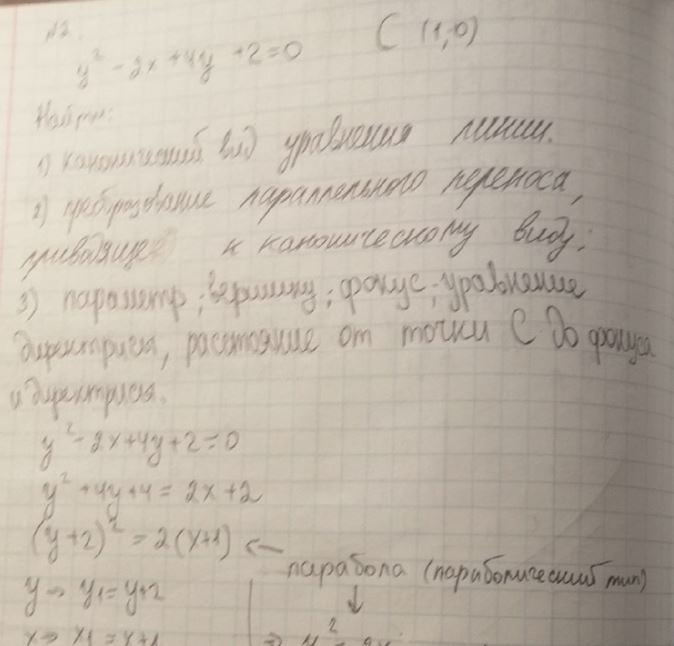 №2.
y² - 2x + 4y + 2 = 0 C (1;0)
Найти:
1) канонический вид уравнения линии.
2) преобразование параллельного переноса,
приводящее к каноническому виду;
3) параметр; вершину; фокус; уравнение
директрисы, расстояние от точки C до фокуса
и директрисы.
y² - 2x + 4y + 2 = 0
y² + 4y + 4 = 2x + 2
(y+2)² = 2(x+1) ←
парабола (параболический тип)
y → y₁ = y+2
↓
x → x₁ = x+1